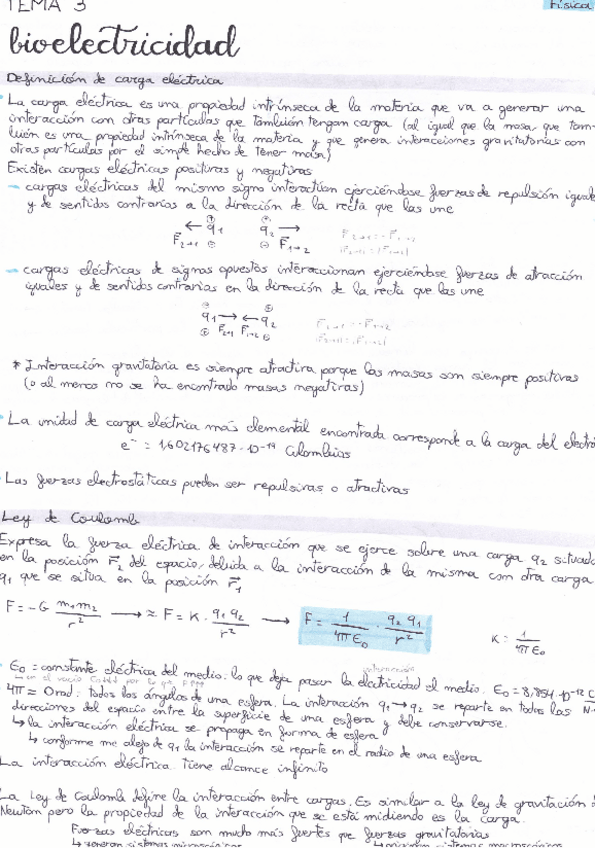 TEMA 3
Física
bioelectricidad
Definición de carga eléctrica
La carga eléctrica es una propiedad intrínseca de la materia que va a generar una
interacción con otras partículas que también tengan carga (al igual que la masa, que tam-
bién es una propiedad intrínseca de la materia y que genera interacciones gravitatorias con
otras partículas por el simple hecho de tener masa)
Existen cargas eléctricas positivas y negativas
→ cargas eléctricas del mismo signo interactúan ejerciéndose fuerzas de repulsión iguales
y de sentidos contrarios a la dirección de la recta que las une
⊕ ⊕
← q1 q2 →
F2→1 ⊖ ⊖ F1→2
F2→1 = -F1→2
|F2→1| = |F1→2|
→ cargas eléctricas de signos opuestos interaccionan ejerciéndose fuerzas de atracción
iguales y de sentidos contrarios en la dirección de la recta que las une
⊖ ⊕
q1 → ← q2
⊕ F2→1 F1→2 ⊖
F2→1 = -F1→2
|F2→1| = |F1→2|
* Interacción gravitatoria es siempre atractiva porque las masas son siempre positivas
(o al menos no se ha encontrado masas negativas)
La unidad de carga eléctrica más elemental encontrada corresponde a la carga del electró
e⁻ = 1,602176487·10⁻¹⁹ Culombios
Las fuerzas electrostáticas pueden ser repulsivas o atractivas
Ley de Coulomb
Expresa la fuerza eléctrica de interacción que se ejerce sobre una carga q2 situada
en la posición r2 del espacio, debida a la interacción de la misma con otra carga
q1 que se sitúa en la posición r1
F = -G m1m2/r² → ≈ F = K · q1q2/r² → F = 1/4πε0 · q2q1/r²
K = 1/4πε0
interacción
ε0 = constante eléctrica del medio: lo que deja pasar la electricidad el medio. ε0 = 8,854·10⁻¹² C
4π = 0 rad: todos los ángulos de una esfera. La interacción q1→q2 se reparte en todas las
direcciones del espacio entre la superficie de una esfera y debe conservarse.
↳ la interacción eléctrica se propaga en forma de esfera
↳ conforme me alejo de q1 la interacción se reparte en el radio de una esfera
La interacción eléctrica tiene alcance infinito
La Ley de Coulomb define la interacción entre cargas. Es similar a la ley de gravitación d
Newton pero la propiedad de la interacción que se está midiendo es la carga.
Fuerzas eléctricas son mucho más fuertes que fuerzas gravitatorias
↳ generan sistemas microscópicos
sistemas macroscópicos